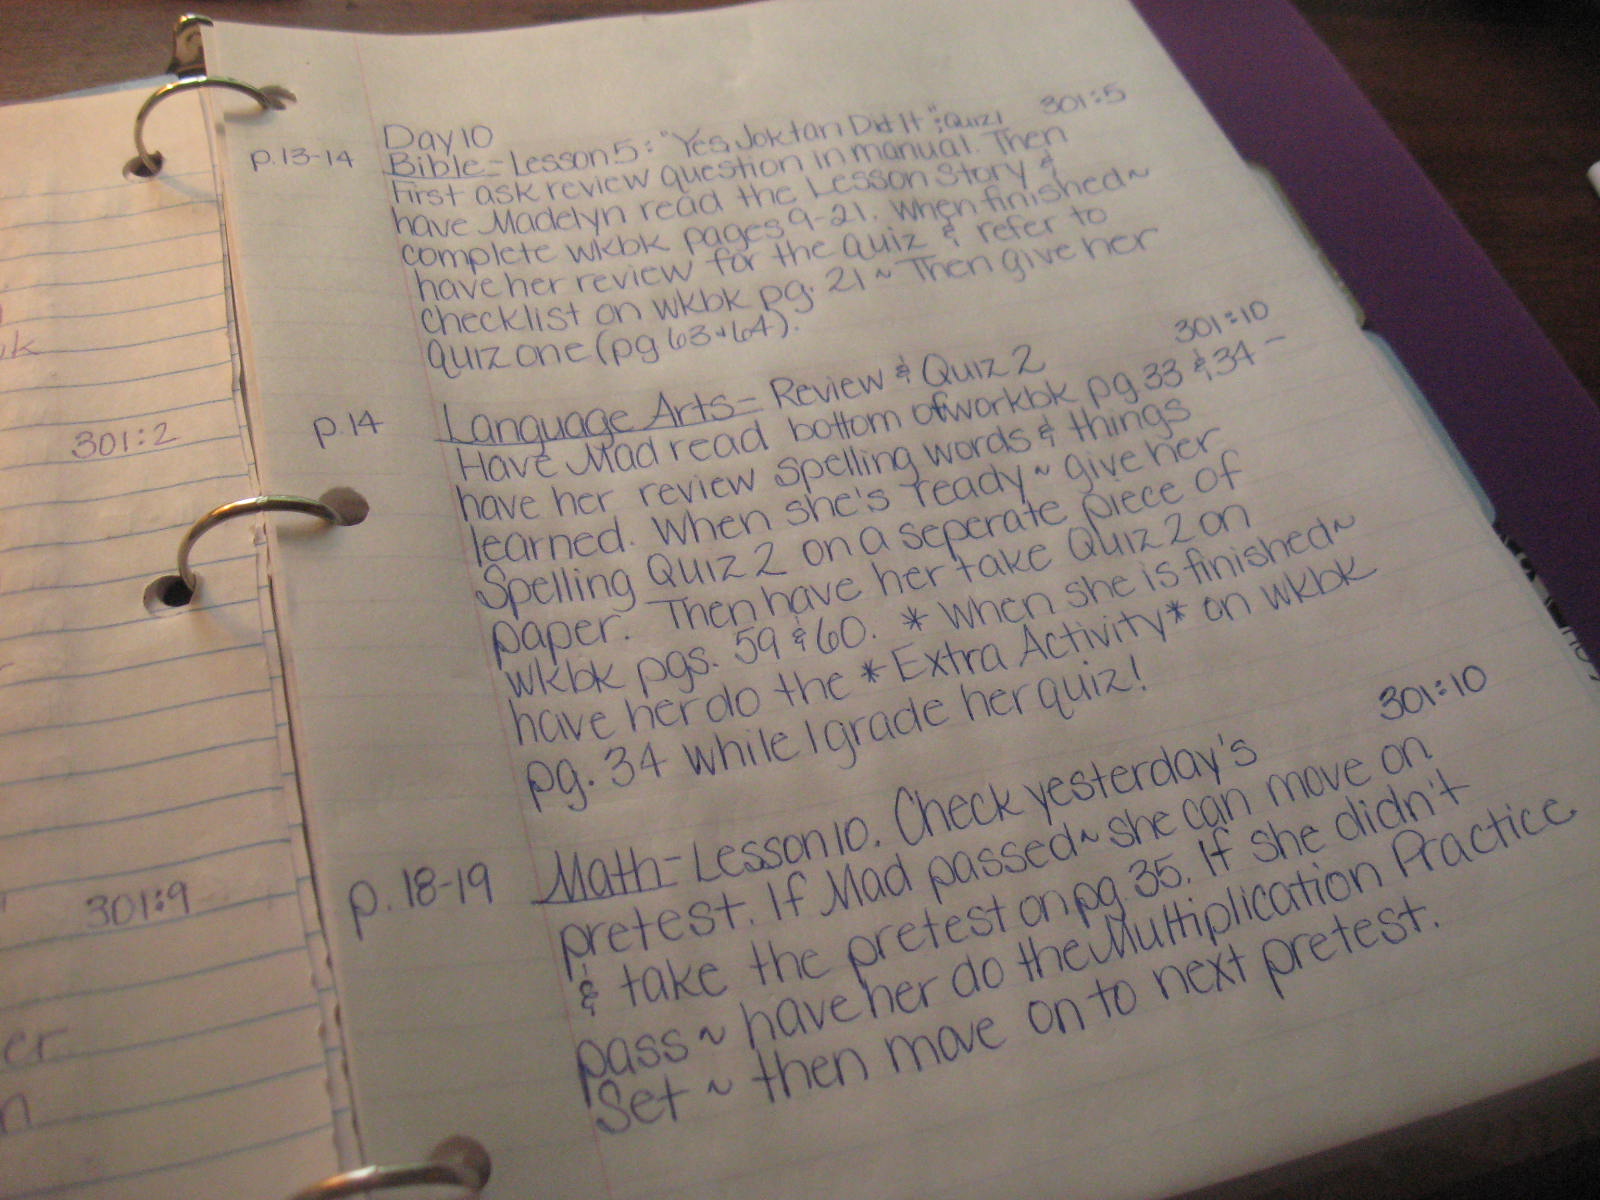 Day 10
301:5
p.13-14 Bible - Lesson 5: "Yes, Joktan Did It"; Quiz 1
First ask review question in manual. Then
have Madelyn read the Lesson Story &
complete wkbk pages 9-21. When finished~
have her review for the quiz & refer to
checklist on wkbk pg. 21 ~ Then give her
quiz one (pg 63+64).
301:10
p.14 Language Arts - Review & Quiz 2
Have Mad read bottom of workbk pg 33 & 34 -
have her review spelling words & things
learned. When she's ready ~ give her
Spelling Quiz 2 on a seperate piece of
paper. Then have her take Quiz 2 on
wkbk pgs. 59 & 60. * When she is finished~
have her do the *Extra Activity* on wkbk
pg. 34 while I grade her quiz!
301:10
p.18-19 Math - Lesson 10. Check yesterday's
pretest. If Mad passed~ she can move on
& take the pretest on pg. 35. If she didn't
pass ~ have her do the Multiplication Practice
Set ~ then move on to next pretest.
301:2
301:9